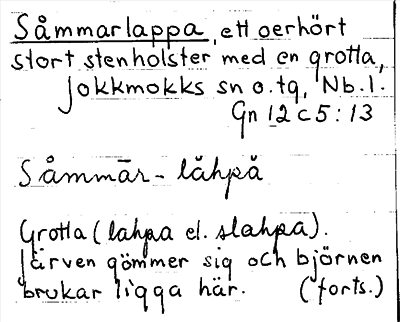 Såmmarlappa, ett oerhört
stort stenholster med en grotta,
Jokkmokks sn o. tg, Nb. l.
Gn 12 c 5 : 13
Såmmār - låhpå
Grotta (lahpa el. slahpa).
Järven gömmer sig och björnen
brukar ligga här. (forts.)